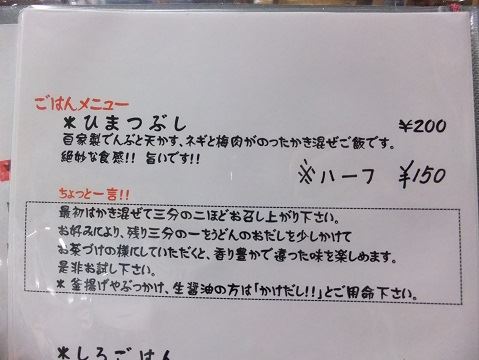 ごはんメニュー
＊ひまつぶし ¥200
自家製でんぶと天かす、ネギと梅肉がのったかき混ぜご飯です。
絶妙な食感!! 旨いです!!
※ハーフ ¥150
ちょっと一言!!
最初はかき混ぜて三分の二ほどお召し上がり下さい。
お好みにより、残り三分の一をうどんのおだしを少しかけて
お茶づけの様にしていただくと、香り豊かで違った味を楽しめます。
是非お試し下さい。
＊釜揚げやぶつかけ、生醤油の方は「かけだし!!」とご用命下さい。
＊しろごはん